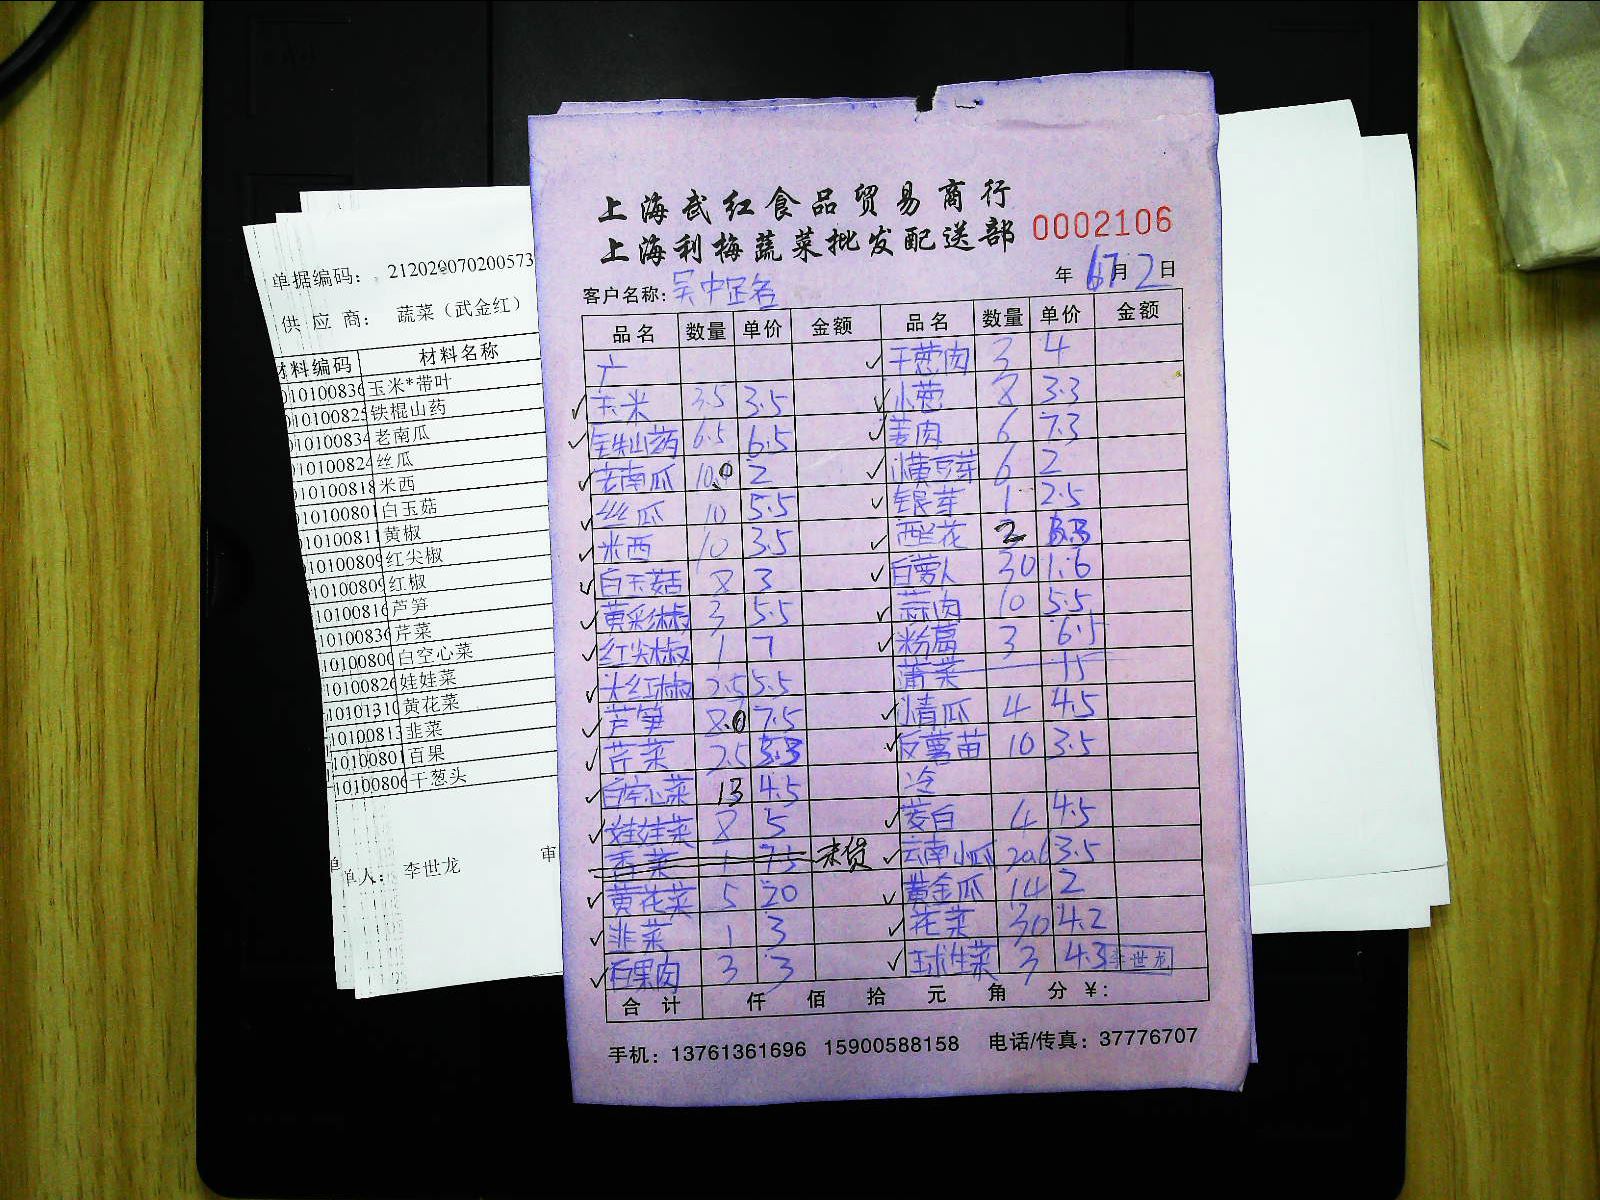 单据编码： 212020070200573
供 应 商： 蔬菜（武金红）
材料编码 材料名称
010100836 玉米*带叶
010100825 铁棍山药
010100834 老南瓜
010100824 丝瓜
010100818 米西
010100801 白玉菇
010100811 黄椒
010100809 红尖椒
010100809 红椒
010100816 芦笋
010100836 芹菜
10100800 白空心菜
10100826 娃娃菜
10101310 黄花菜
10100813 韭菜
10100801 百果
10100806 干葱头
单人： 李世龙 审
上海武红食品贸易商行
上海利梅蔬菜批发配送部 0002106
客户名称: 吴中店名 年 7月2日
品名 数量 单价 金额 品名 数量 单价 金额
广 干葱肉 3 4
玉米 3.5 3.5 小葱 8 3.3
铁棍山药 6.5 6.5 姜肉 6 7.3
老南瓜 10.0 2 黄豆芽 6 2
丝瓜 10 5.5 银芽 1 2.5
米西 10 3.5 西兰花 2
白玉菇 8 3 白萝卜 30 1.6
黄彩椒 3 5.5 蒜肉 10 5.5
红尖椒 1 7 粉葛 3 6.5
大红椒 2.5 5.5 蒲菜 15
芦笋 8.0 7.5 青瓜 4 4.5
芹菜 2.5 3.3 反薯苗 10 3.5
白空心菜 13 4.5 冷
娃娃菜 8 5 茭白 4 4.5
香菜 1 7.5 未货 云南小瓜 20.6 3.5
黄花菜 5 20 黄金瓜 14 2
韭菜 1 3 花菜 30 4.2
百果肉 3 3 球生菜 3 4.3 李世龙
合计 仟 佰 拾 元 角 分 ¥:
手机：13761361696 15900588158 电话/传真：37776707